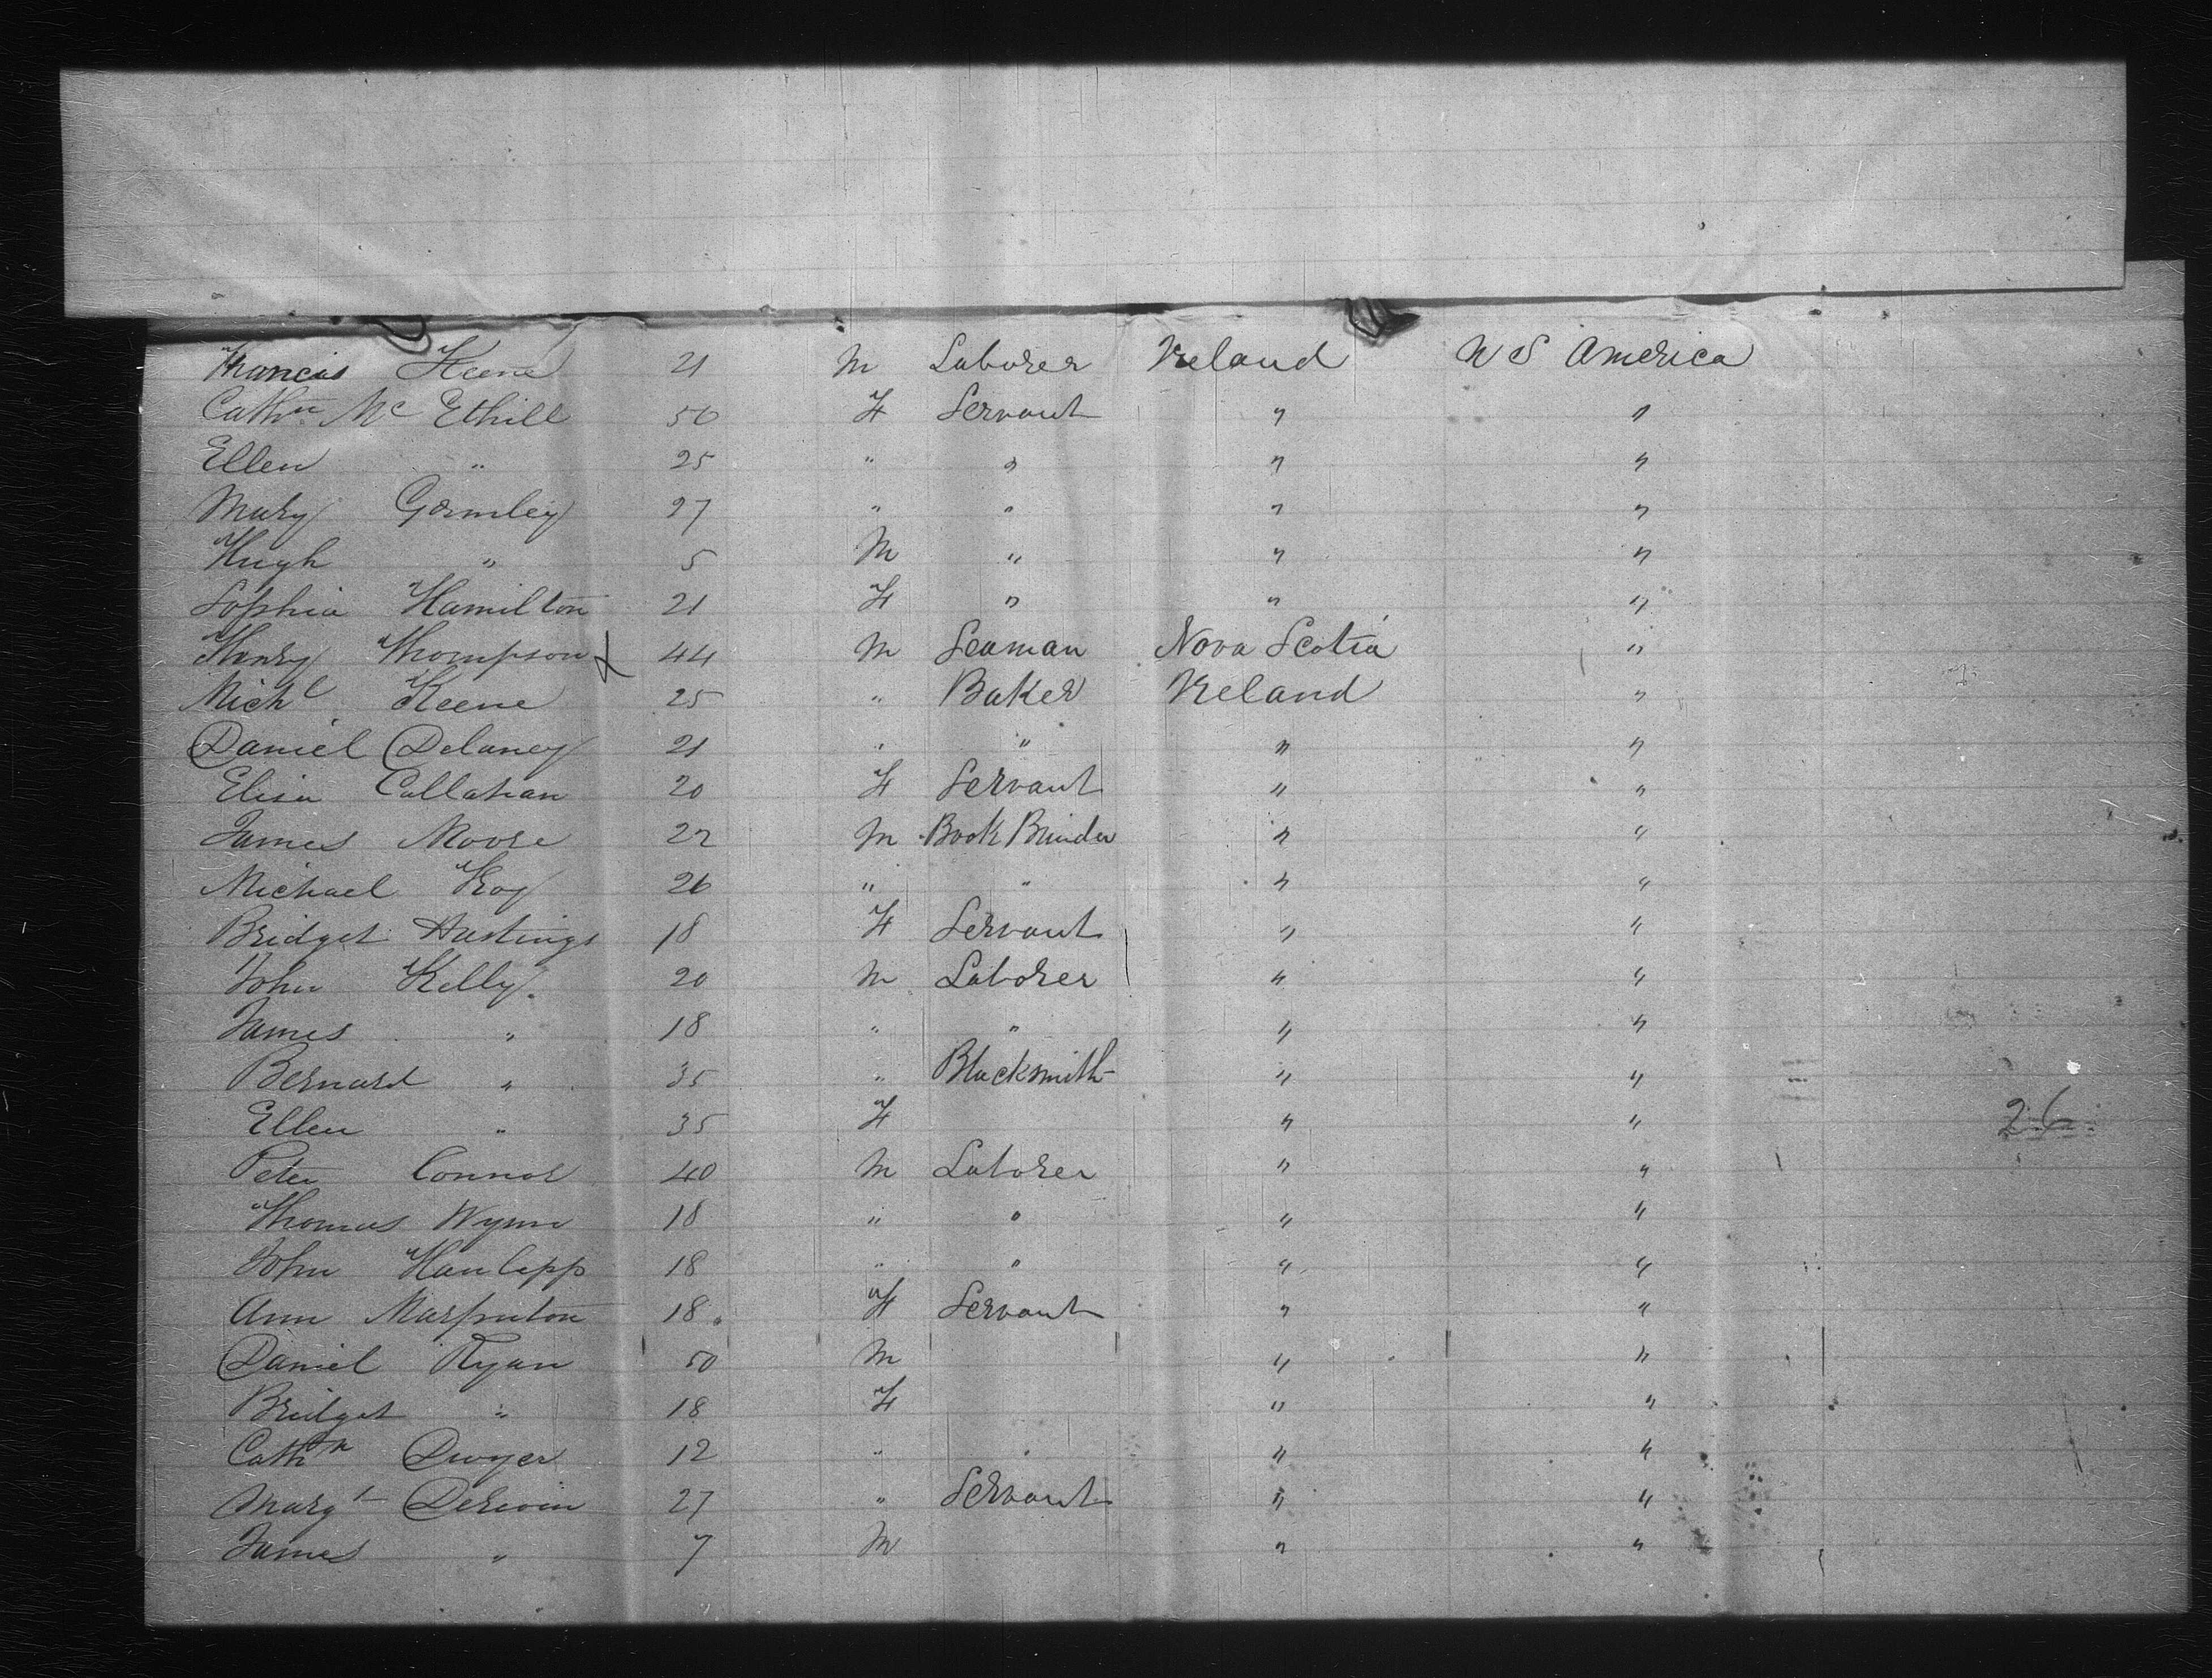 Francis Keene 21 M Laborer Ireland U S America
Cathn Mc Ethill 50 F Servant " "
Ellen " 25 " " " "
Mary Gormley 27 " " " "
Hugh " 5 M " " "
Sophia Hamilton 21 F " " "
Henry Thompson x 44 M Seaman Nova Scotia "
Michl Keene 25 " Baker Ireland "
Daniel Delaney 21 " " " "
Elisa Callahan 20 F Servant " "
James Moore 22 M Book Binder " "
Michael 26 " " " "
Bridget Hastings 18 F Servant " "
John Kelly 20 M Laborer " "
James " 18 " " " "
Bernard " 35 " Blacksmith " "
Ellen " 35 F " "
26
Peter Connor 40 M Laborer " "
Thomas Wynn 18 " " " "
John 18 " " " "
Ann 18 F Servant " "
Daniel Ryan 50 M " "
Bridget " 18 F " "
Cathn Dwyer 12 " " " "
Margt 27 " Servant " "
James " 7 M " "